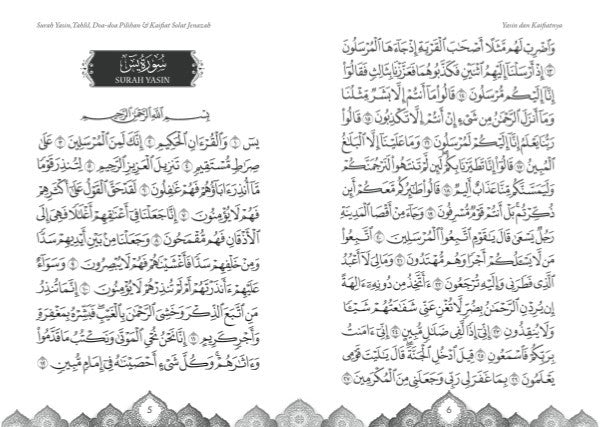 Surah Yasin,Tahlil, Doa-doa Pilihan & Kaifiat Solat Jenazah
سُورَةُ يسٓ
SURAH YASIN
بِسْمِ ٱللَّهِ ٱلرَّحْمَٰنِ ٱلرَّحِيمِ
يسٓ ۝١ وَٱلْقُرْءَانِ ٱلْحَكِيمِ ۝٢ إِنَّكَ لَمِنَ ٱلْمُرْسَلِينَ ۝٣ عَلَىٰ
صِرَٰطٍ مُّسْتَقِيمٍ ۝٤ تَنزِيلَ ٱلْعَزِيزِ ٱلرَّحِيمِ ۝٥ لِتُنذِرَ قَوْمًا
مَّآ أُنذِرَ ءَابَآؤُهُمْ فَهُمْ غَٰفِلُونَ ۝٦ لَقَدْ حَقَّ ٱلْقَوْلُ عَلَىٰٓ أَكْثَرِهِمْ
فَهُمْ لَا يُؤْمِنُونَ ۝٧ إِنَّا جَعَلْنَا فِىٓ أَعْنَٰقِهِمْ أَغْلَٰلًا فَهِىَ إِلَى
ٱلْأَذْقَانِ فَهُم مُّقْمَحُونَ ۝٨ وَجَعَلْنَا مِنۢ بَيْنِ أَيْدِيهِمْ سَدًّا
وَمِنْ خَلْفِهِمْ سَدًّا فَأَغْشَيْنَٰهُمْ فَهُمْ لَا يُبْصِرُونَ ۝٩ وَسَوَآءٌ
عَلَيْهِمْ ءَأَنذَرْتَهُمْ أَمْ لَمْ تُنذِرْهُمْ لَا يُؤْمِنُونَ ۝١٠ إِنَّمَا تُنذِرُ
مَنِ ٱتَّبَعَ ٱلذِّكْرَ وَخَشِىَ ٱلرَّحْمَٰنَ بِٱلْغَيْبِ ۖ فَبَشِّرْهُ بِمَغْفِرَةٍ
وَأَجْرٍ كَرِيمٍ ۝١١ إِنَّا نَحْنُ نُحْىِ ٱلْمَوْتَىٰ وَنَكْتُبُ مَا قَدَّمُوا۟
وَءَاثَٰرَهُمْ ۚ وَكُلَّ شَىْءٍ أَحْصَيْنَٰهُ فِىٓ إِمَامٍ مُّبِينٍ ۝١٢
5
Yasin dan Kaifiatnya
وَٱضْرِبْ لَهُم مَّثَلًا أَصْحَٰبَ ٱلْقَرْيَةِ إِذْ جَآءَهَا ٱلْمُرْسَلُونَ
۝١٣ إِذْ أَرْسَلْنَآ إِلَيْهِمُ ٱثْنَيْنِ فَكَذَّبُوهُمَا فَعَزَّزْنَا بِثَالِثٍ فَقَالُوٓا۟
إِنَّآ إِلَيْكُم مُّرْسَلُونَ ۝١٤ قَالُوا۟ مَآ أَنتُمْ إِلَّا بَشَرٌ مِّثْلُنَا
وَمَآ أَنزَلَ ٱلرَّحْمَٰنُ مِن شَىْءٍ إِنْ أَنتُمْ إِلَّا تَكْذِبُونَ ۝١٥ قَالُوا۟
رَبُّنَا يَعْلَمُ إِنَّآ إِلَيْكُمْ لَمُرْسَلُونَ ۝١٦ وَمَا عَلَيْنَآ إِلَّا ٱلْبَلَٰغُ
ٱلْمُبِينُ ۝١٧ قَالُوٓا۟ إِنَّا تَطَيَّرْنَا بِكُمْ ۖ لَئِن لَّمْ تَنتَهُوا۟ لَنَرْجُمَنَّكُمْ
وَلَيَمَسَّنَّكُم مِّنَّا عَذَابٌ أَلِيمٌ ۝١٨ قَالُوا۟ طَٰٓئِرُكُم مَّعَكُمْ ۚ أَئِن
ذُكِّرْتُم ۚ بَلْ أَنتُمْ قَوْمٌ مُّسْرِفُونَ ۝١٩ وَجَآءَ مِنْ أَقْصَا ٱلْمَدِينَةِ
رَجُلٌ يَسْعَىٰ قَالَ يَٰقَوْمِ ٱتَّبِعُوا۟ ٱلْمُرْسَلِينَ ۝٢٠ ٱتَّبِعُوا۟
مَن لَّا يَسْـَٔلُكُمْ أَجْرًا وَهُم مُّهْتَدُونَ ۝٢١ وَمَا لِىَ لَآ أَعْبُدُ
ٱلَّذِى فَطَرَنِى وَإِلَيْهِ تُرْجَعُونَ ۝٢٢ ءَأَتَّخِذُ مِن دُونِهِۦٓ ءَالِهَةً
إِن يُرِدْنِ ٱلرَّحْمَٰنُ بِضُرٍّ لَّا تُغْنِ عَنِّى شَفَٰعَتُهُمْ شَيْـًٔا
وَلَا يُنقِذُونِ ۝٢٣ إِنِّىٓ إِذًا لَّفِى ضَلَٰلٍ مُّبِينٍ ۝٢٤ إِنِّىٓ ءَامَنتُ
بِرَبِّكُمْ فَٱسْمَعُونِ ۝٢٥ قِيلَ ٱدْخُلِ ٱلْجَنَّةَ ۖ قَالَ يَٰلَيْتَ قَوْمِى
يَعْلَمُونَ ۝٢٦ بِمَا غَفَرَ لِى رَبِّى وَجَعَلَنِى مِنَ ٱلْمُكْرَمِينَ ۝٢٧
6